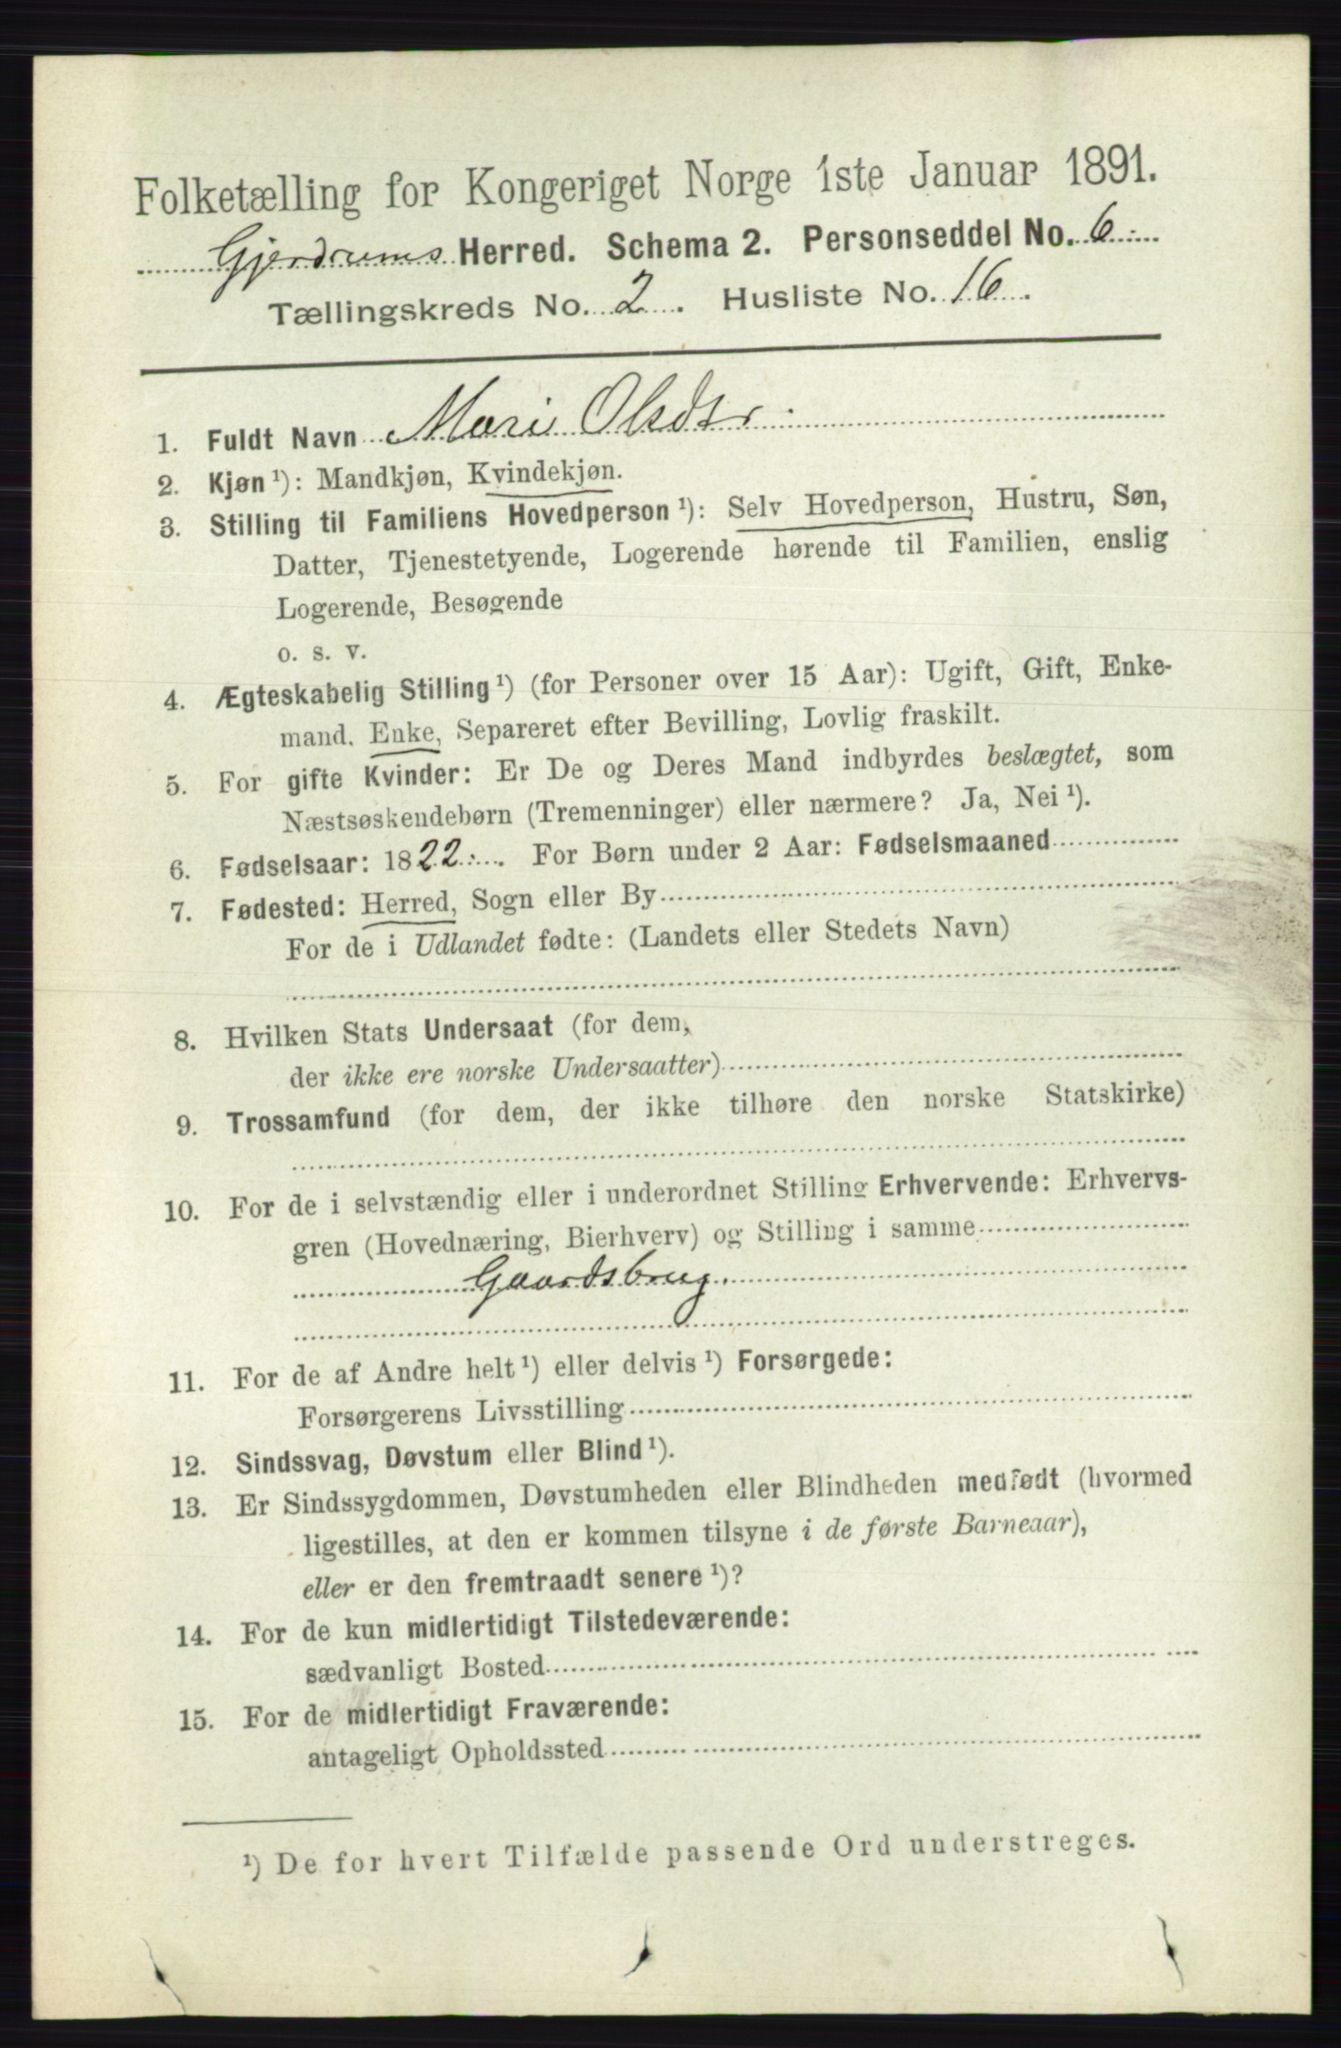 Folketælling for Kongeriget Norge 1ste Januar 1891.
Gjerdrums Herred. Schema 2. Personseddel No. 6.
Tællingskreds No. 2. Husliste No. 16.
1. Fuldt Navn Mari Olsdtr
2. Kjøn ¹): Mandkjøn, Kvindekjøn.
3. Stilling til Familiens Hovedperson ¹): Selv Hovedperson, Hustru, Søn,
Datter, Tjenestetyende, Logerende hørende til Familien, enslig
Logerende, Besøgende
o. s. v.
4. Ægteskabelig Stilling ¹) (for Personer over 15 Aar): Ugift, Gift, Enke-
mand, Enke, Separeret efter Bevilling, Lovlig fraskilt.
5. For gifte Kvinder: Er De og Deres Mand indbyrdes beslægtet, som
Næstsøskendebørn (Tremenninger) eller nærmere? Ja, Nei ¹).
6. Fødselsaar: 1822. For Børn under 2 Aar: Fødselsmaaned
7. Fødested: Herred, Sogn eller By
For de i Udlandet fødte: (Landets eller Stedets Navn)
8. Hvilken Stats Undersaat (for dem,
der ikke ere norske Undersaatter)
9. Trossamfund (for dem, der ikke tilhøre den norske Statskirke)
10. For de i selvstændig eller i underordnet Stilling Erhvervende: Erhvervs-
gren (Hovednæring, Bierhverv) og Stilling i samme
Gaardsbrug.
11. For de af Andre helt ¹) eller delvis ¹) Forsørgede:
Forsørgerens Livsstilling
12. Sindssvag, Døvstum eller Blind ¹).
13. Er Sindssygdommen, Døvstumheden eller Blindheden medfødt (hvormed
ligestilles, at den er kommen tilsyne i de første Barneaar),
eller er den fremtraadt senere ¹)?
14. For de kun midlertidigt Tilstedeværende:
sædvanligt Bosted
15. For de midlertidigt Fraværende:
antageligt Opholdssted
¹) De for hvert Tilfælde passende Ord understreges.